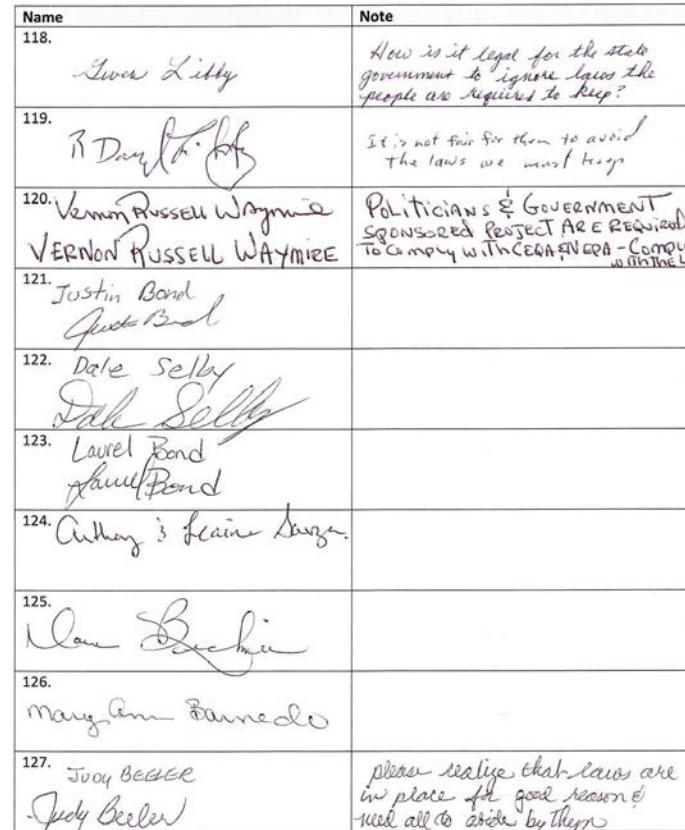 Name Note
118.
Gwen Libby
How is it legal for the state
government to ignore laws the
people are required to keep?
119.
R Daryl
It is not fair for them to avoid
the laws we must keep
120. Vernon Russell Waymire
VERNON RUSSELL WAYMIRE
POLITICIANS & GOVERNMENT
SPONSORED PROJECT ARE REQUIRED
To Comply with CEQA & NEPA - Comply
with the L
121.
Justin Bond
Justin Bond
122.
Dale Selby
Dale Selby
123.
Laurel Bond
Laurel Bond
124.
Anthony & Leaine
125.
126.
Mary Ann Barnedo
127.
JUDY BEELER
Judy Beeler
please realize that laws are
in place for good reason &
need all to abide by them